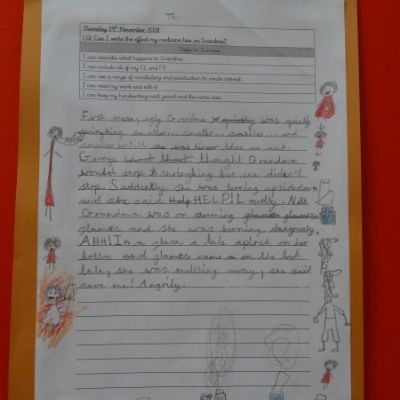 Thursday 29th November 2018
LQ: Can I write the effect my medicine has on Grandma?
Steps to Success
I can describe what happens to Grandma
I can include all of my CL and FS
I can use a range of vocabulary and punctuation to create interest
I can read my work and edit it
I can keep my handwriting neat, joined and the same size
First mean, ugly Grandma was quickly
smaller... smaller... smaller... and
smaller untill she was as ant.
George thought Grandma
wouldnt stop shrinking but she didn't
stop. Suddently she was turning upsidedown
and she said Help HELP! L Next
Grandma was on
flames and she was burning dangrously.
AHH! In a flash a tale on her
bottom and flames came on the
tale, she was mellting away, she said
save me! Angrily.